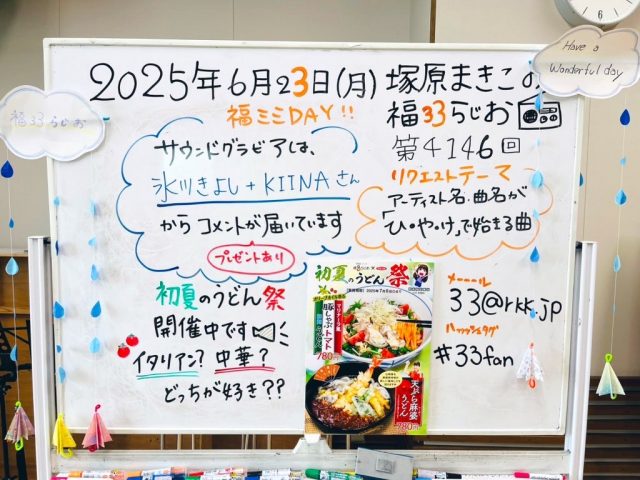 2025年6月23日(月) 塚原まきこの
福ミミDAY!!
福33らじお
第4146回
Have a
Wonderful day
福33らじお
サウンドグラビアは、
氷川きよし+KIINAさん
からコメントが届いています
プレゼントあり
リクエストテーマ
アーティスト名・曲名が
「ひ・や・け」で始まる曲
初夏のうどん祭
開催中です
イタリアン? 中華?
どっちが好き??
初夏のうどん祭
豚しゃぶトマト
780円
天ぷら麻婆
うどん
780円
メーーール
33@rkk.jp
ハッシュタグ
#33fan